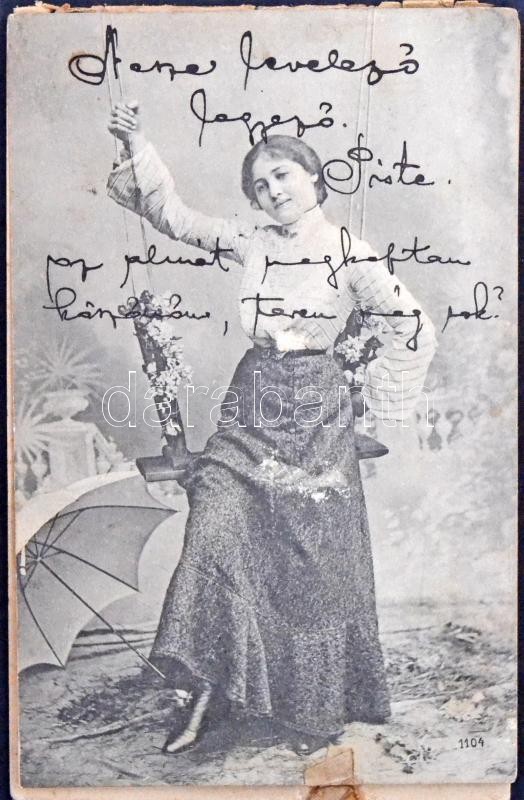 levelező
Piste.
az almát megkaptam
köszönöm, terem még sok?
darabanth
1104